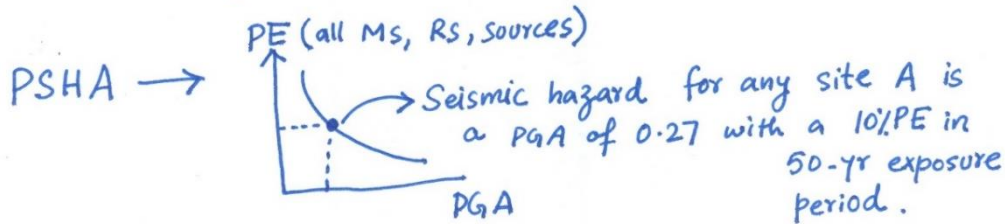 PE (all Ms, RS, sources)
PSHA → Seismic hazard for any site A is
a PGA of 0.27 with a 10% PE in
50-yr exposure
period.
PGA